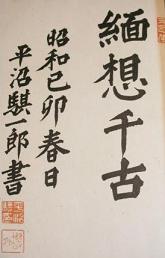 緬想千古
昭和己卯春日
平沼騏一郎書